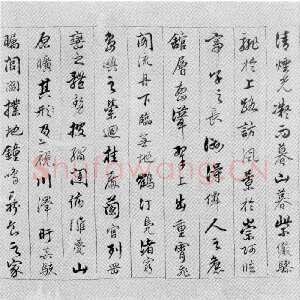 清煙光凝而暮山紫儼驂
騑於上路訪風景於崇阿臨
帝子之長洲得僊人之舊
館層巒聳翠上出重霄飛
閣流丹下臨無地鶴汀鳧渚窮
島嶼之縈迴桂殿蘭宮列岡
巒之體勢披繡闥俯雕甍山
原曠其川澤盱其駭
矚閭閻撲地鐘鳴鼎食之家
shufawang.cn